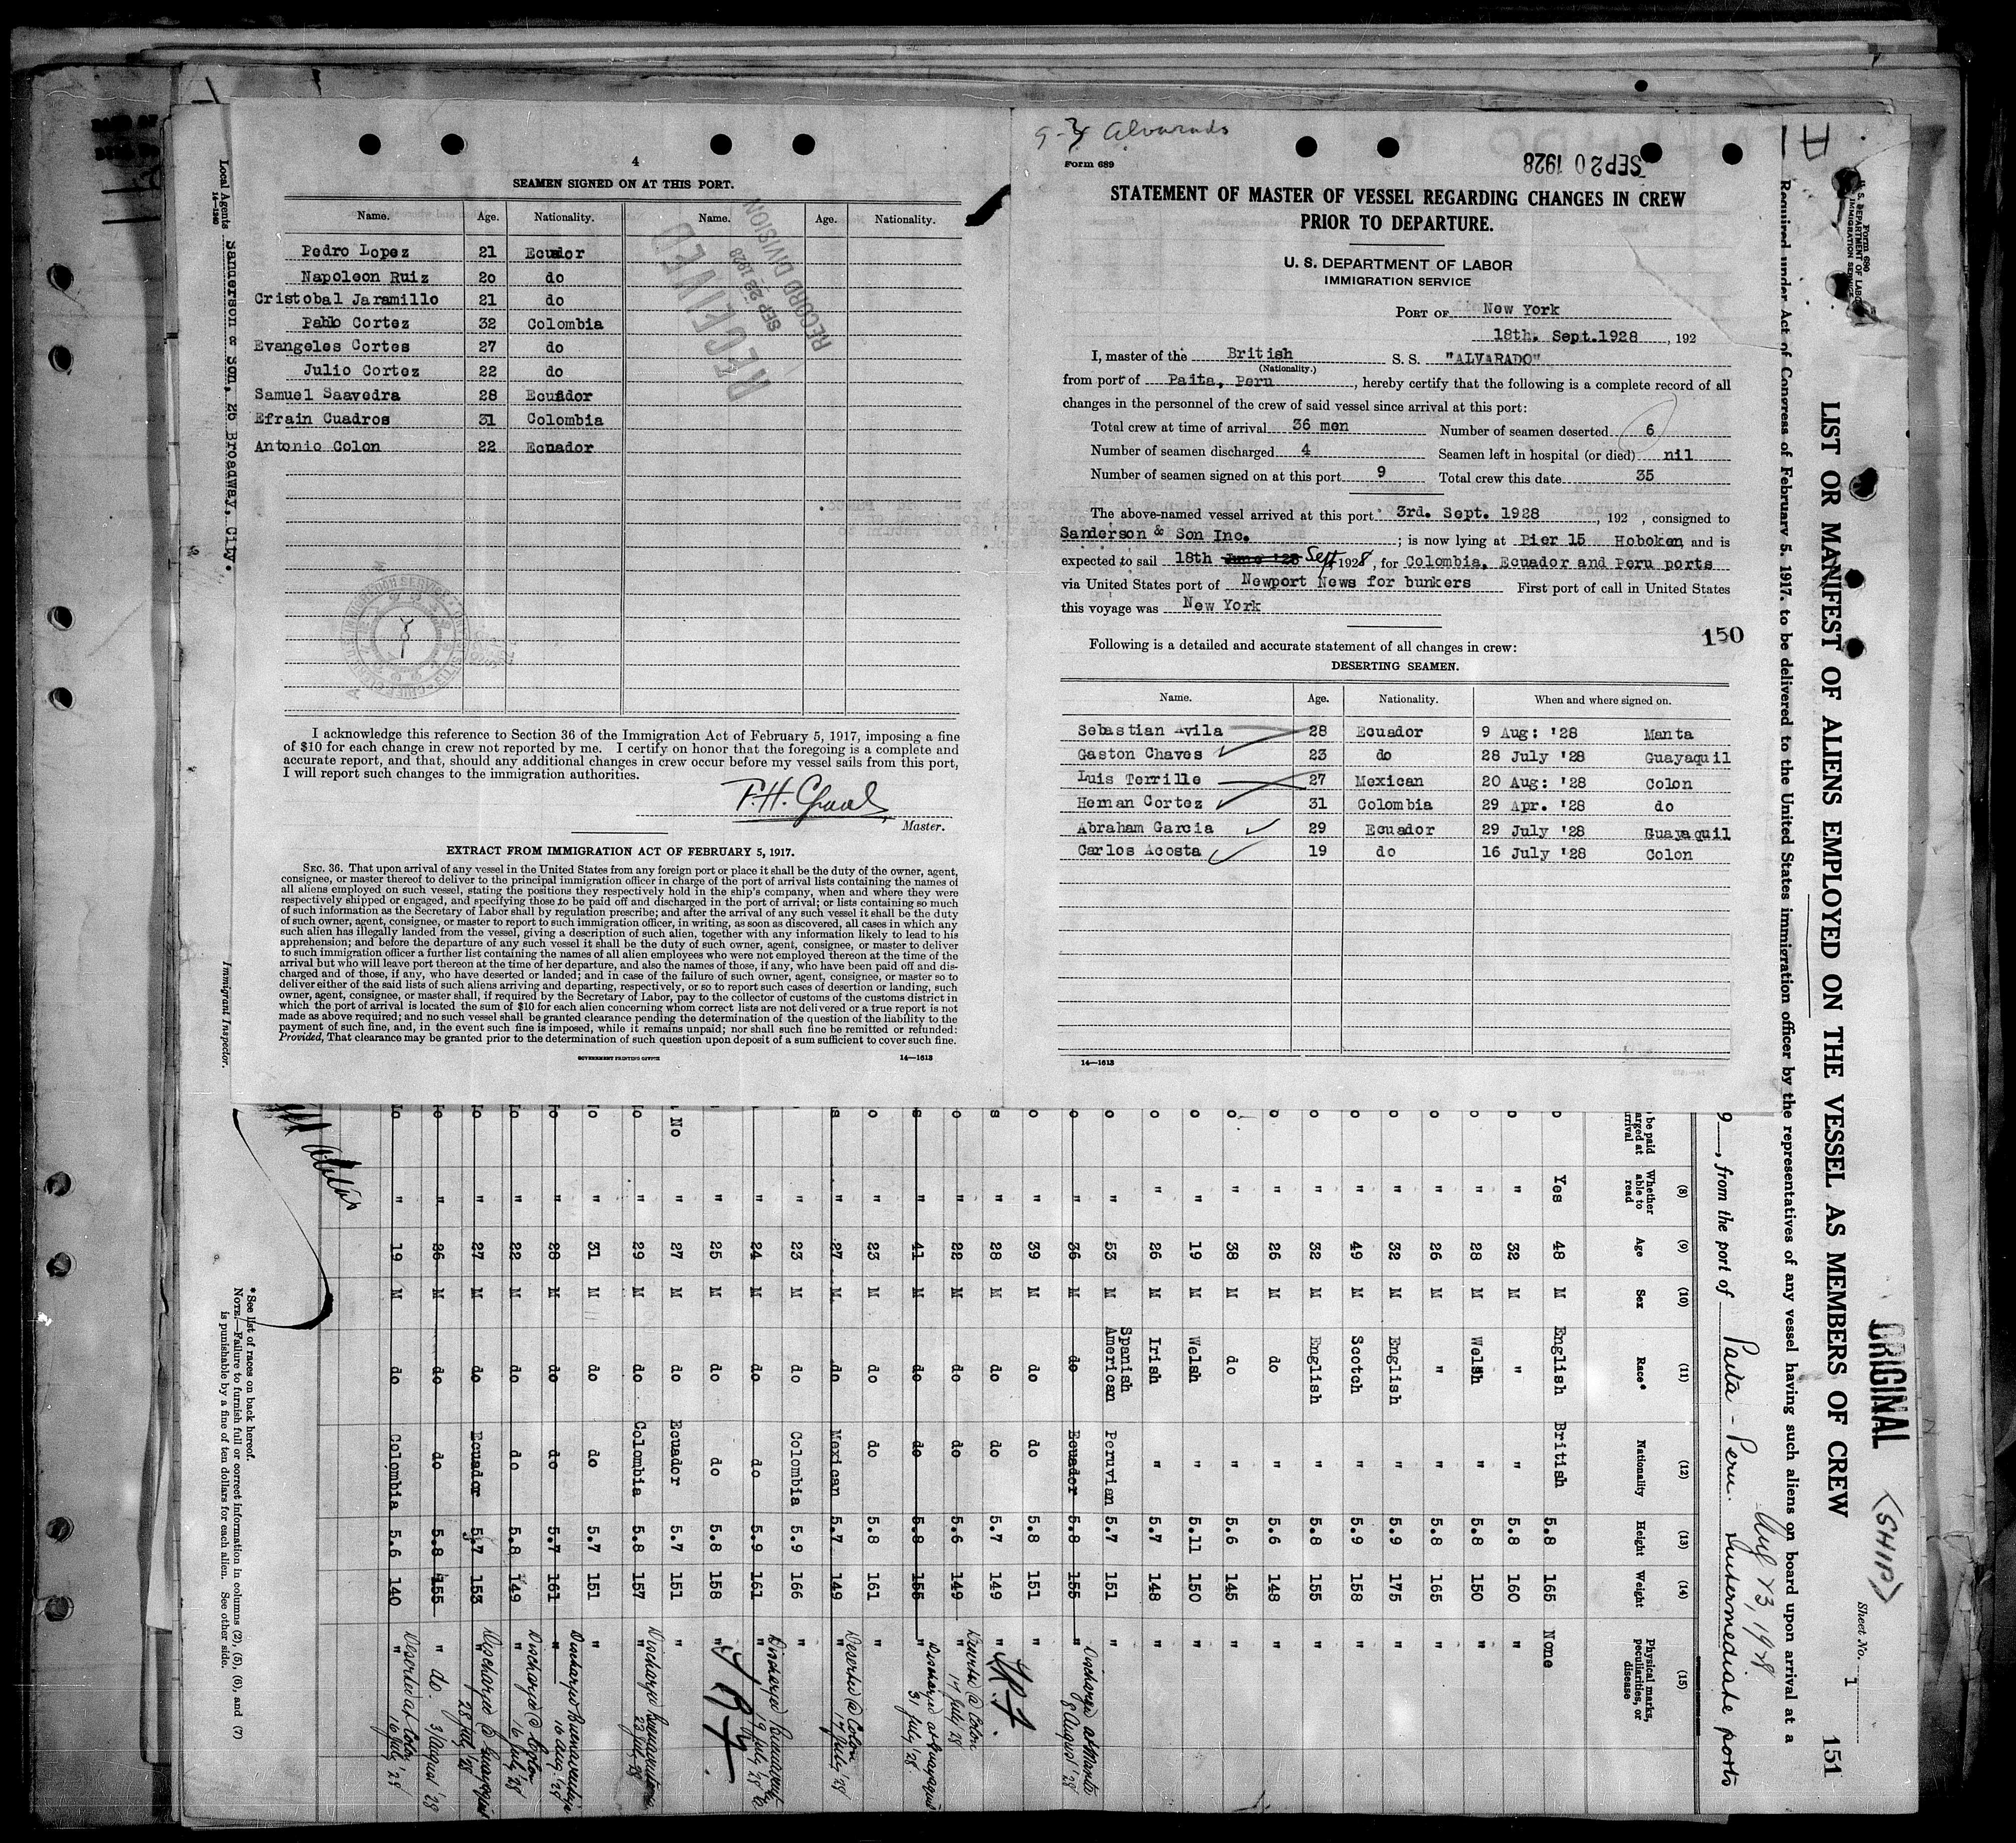 4
SEAMEN SIGNED ON AT THIS PORT.
Name. Age. Nationality. Name. Age. Nationality.
Pedro Lopez 21 Ecuador
Napoleon Ruiz 20 do
Cristobal Jaramillo 21 do
Pablo Cortez 32 Colombia
Evangeles Cortes 27 do
Julio Cortez 22 do
Samuel Saavedra 28 Ecuador
Efrain Cuadros 31 Colombia
Antonio Colon 22 Ecuador
RECEIVED
SEP 22 1928
RECORD DIVISION
I acknowledge this reference to Section 36 of the Immigration Act of February 5, 1917, imposing a fine
of $10 for each change in crew not reported by me. I certify on honor that the foregoing is a complete and
accurate report, and that, should any additional changes in crew occur before my vessel sails from this port,
I will report such changes to the immigration authorities.
Master.
EXTRACT FROM IMMIGRATION ACT OF FEBRUARY 5, 1917.
SEC. 36. That upon arrival of any vessel in the United States from any foreign port or place it shall be the duty of the owner, agent,
consignee, or master thereof to deliver to the principal immigration officer in charge of the port of arrival lists containing the names of
all aliens employed on such vessel, stating the positions they respectively hold in the ship's company, when and where they were
respectively shipped or engaged, and specifying those to be paid off and discharged in the port of arrival; or lists containing so much
of such information as the Secretary of Labor shall by regulation prescribe; and after the arrival of any such vessel it shall be the duty
of such owner, agent, consignee, or master to report to such immigration officer, in writing, as soon as discovered, all cases in which any
such alien has illegally landed from the vessel, giving a description of such alien, together with any information likely to lead to his
apprehension; and before the departure of any such vessel it shall be the duty of such owner, agent, consignee, or master to deliver
to such immigration officer a further list containing the names of all alien employees who were not employed thereon at the time of the
arrival but who will leave port thereon at the time of her departure, and also the names of those, if any, who have been paid off and dis-
charged and of those, if any, who have deserted or landed; and in case of the failure of such owner, agent, consignee, or master so to
deliver either of the said lists of such aliens arriving and departing, respectively, or so to report such cases of desertion or landing, such
owner, agent, consignee, or master shall, if required by the Secretary of Labor, pay to the collector of customs of the customs district in
which the port of arrival is located the sum of $10 for each alien concerning whom correct lists are not delivered or a true report is not
made as above required; and no such vessel shall be granted clearance pending the determination of the question of the liability to the
payment of such fine, and, in the event such fine is imposed, while it remains unpaid; nor shall such fine be remitted or refunded:
Provided, That clearance may be granted prior to the determination of such question upon deposit of a sum sufficient to cover such fine.
GOVERNMENT PRINTING OFFICE 14—1613
Alvarado
Form 689
SEP 20 1928
STATEMENT OF MASTER OF VESSEL REGARDING CHANGES IN CREW
PRIOR TO DEPARTURE.
U. S. DEPARTMENT OF LABOR
IMMIGRATION SERVICE
PORT OF New York
18th. Sept.1928, 192
I, master of the British S. S. "ALVARADO"
(Nationality.)
from port of Paita, Peru, hereby certify that the following is a complete record of all
changes in the personnel of the crew of said vessel since arrival at this port:
Total crew at time of arrival 36 men Number of seamen deserted 6
Number of seamen discharged 4 Seamen left in hospital (or died) nil
Number of seamen signed on at this port 9 Total crew this date 35
The above-named vessel arrived at this port 3rd. Sept. 1928, 192 , consigned to
Sanderson & Son Inc. ; is now lying at Pier 15 Hoboken and is
expected to sail 18th June '28 Sept 1928, for Colombia, Ecuador and Peru ports
via United States port of Newport News for bunkers First port of call in United States
this voyage was New York
150
Following is a detailed and accurate statement of all changes in crew:
DESERTING SEAMEN.
Name. Age. Nationality. When and where signed on.
Sebastian Avila 28 Ecuador 9 Aug: '28 Manta
Gaston Chaves 23 do 28 July '28 Guayaquil
Luis Terrille 27 Mexican 20 Aug: '28 Colon
Heman Cortez 31 Colombia 29 Apr. '28 do
Abraham Garcia 29 Ecuador 29 July '28 Guayaquil
Carlos Acosta 19 do 16 July '28 Colon
14—1613
Local Agents Sanderson & Son, 26 Broadway, City.
14—1240
Immigrant Inspector.
Form 680
U. S. DEPARTMENT OF LABOR
IMMIGRATION SERVICE
ORIGINAL (SHIP) Sheet No. 1
LIST OR MANIFEST OF ALIENS EMPLOYED ON THE VESSEL AS MEMBERS OF CREW 151
Required under Act of Congress of February 5, 1917, to be delivered to the United States immigration officer by the representatives of any vessel having such aliens on board upon arrival at a
Aug 23, 1928
, from the port of Paita - Peru. Intermediate ports
(8) (9) (10) (11) (12) (13) (14) (15)
Whether able to read Age Sex Race* Nationality Height Weight Physical marks, peculiarities, or disease
Yes 48 M English British 5.8 165 None
" 32 M " " 5.8 160 "
" 28 M Welsh " 5.8 150 "
" 26 M " " 5.8 165 "
" 32 M English " 5.9 175 "
" 49 M Scotch " 5.9 158 "
" 32 M English " 5.8 155 "
" 26 M do " 5.6 148 "
" 38 M do " 5.6 145 "
" 19 M Welsh " 5.11 150 "
" 26 M Irish " 5.7 148 "
" 53 M Spanish American Peruvian 5.7 151 "
" 36 M do Ecuador 5.8 155 " Discharged at Manta 8 August '28
" 39 M do do 5.8 151 "
" 28 M do do 5.7 149 "
" 22 M do do 5.6 149 " Deserted @ Colon 17 July '28
" 41 M do do 5.8 155 " Discharged at Guayaquil 31 July '28
" 23 M do do 5.8 161 "
" 27 M. do Mexican 5.7 149 " Deserted @ Colon 17 July '28
" 23 M do Colombia 5.9 166 "
" 24 M do do 5.9 161 " Discharged Buenaventura 19 July '28
" 25 M do do 5.8 158 "
No " 27 M do Ecuador 5.7 151 "
" 29 M do Colombia 5.8 157 " Discharged Buenaventura 23 July '28
" 31 M do do 5.7 151 "
" 28 M do do 5.7 161 " Discharged Buenaventura 16 Aug '28
" 22 M do do 5.8 149 " Discharged @ Colon 16 July '28
" 27 M do Ecuador 5.7 153 " Discharged @ Guayaquil 28 July '28
" 26 M do do 5.8 155 " do. 31 August '28
" 19 M do Colombia 5.6 140 " Deserted at Colon 16 July '28
* See list of races on back hereof.
NOTE.—Failure to furnish full or correct information in columns (2), (5), (6), and (7)
is punishable by a fine of ten dollars for each alien. See other side.